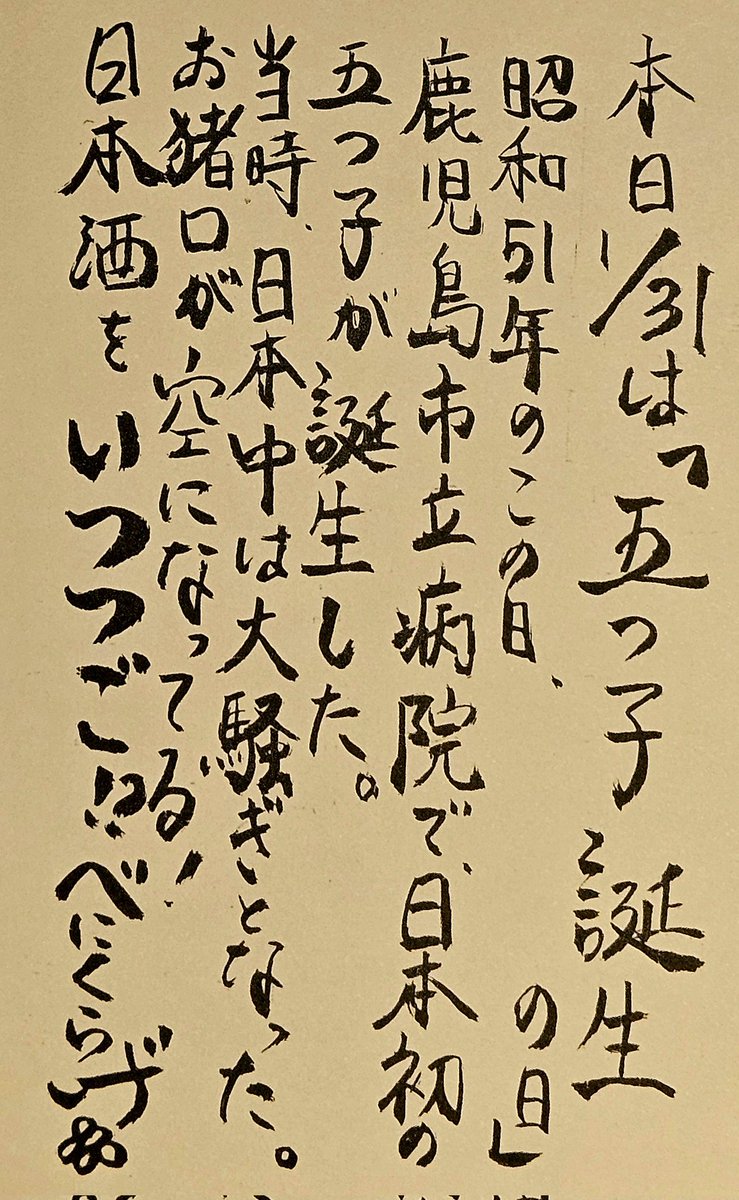 本日1/31は「五つ子誕生
の日」
昭和51年のこの日、
鹿児島市立病院で、日本初の
五つ子が誕生した。
当時、日本中は大騒ぎとなった。
お猪口が空になってる!
日本酒をいつつご
べにくらげ